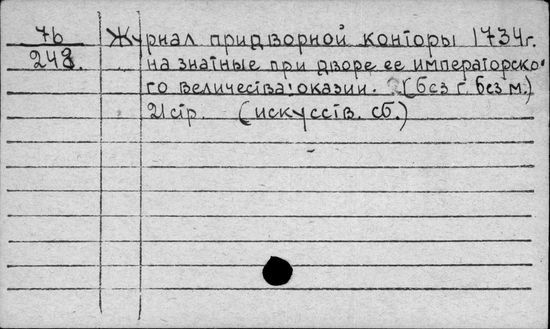 76 Журнал придворной конторы 1734г.
248. на знатные при дворе ее императорско-
го величества: оказии. (без г. без м.)
21 стр. (искусств. сб.)